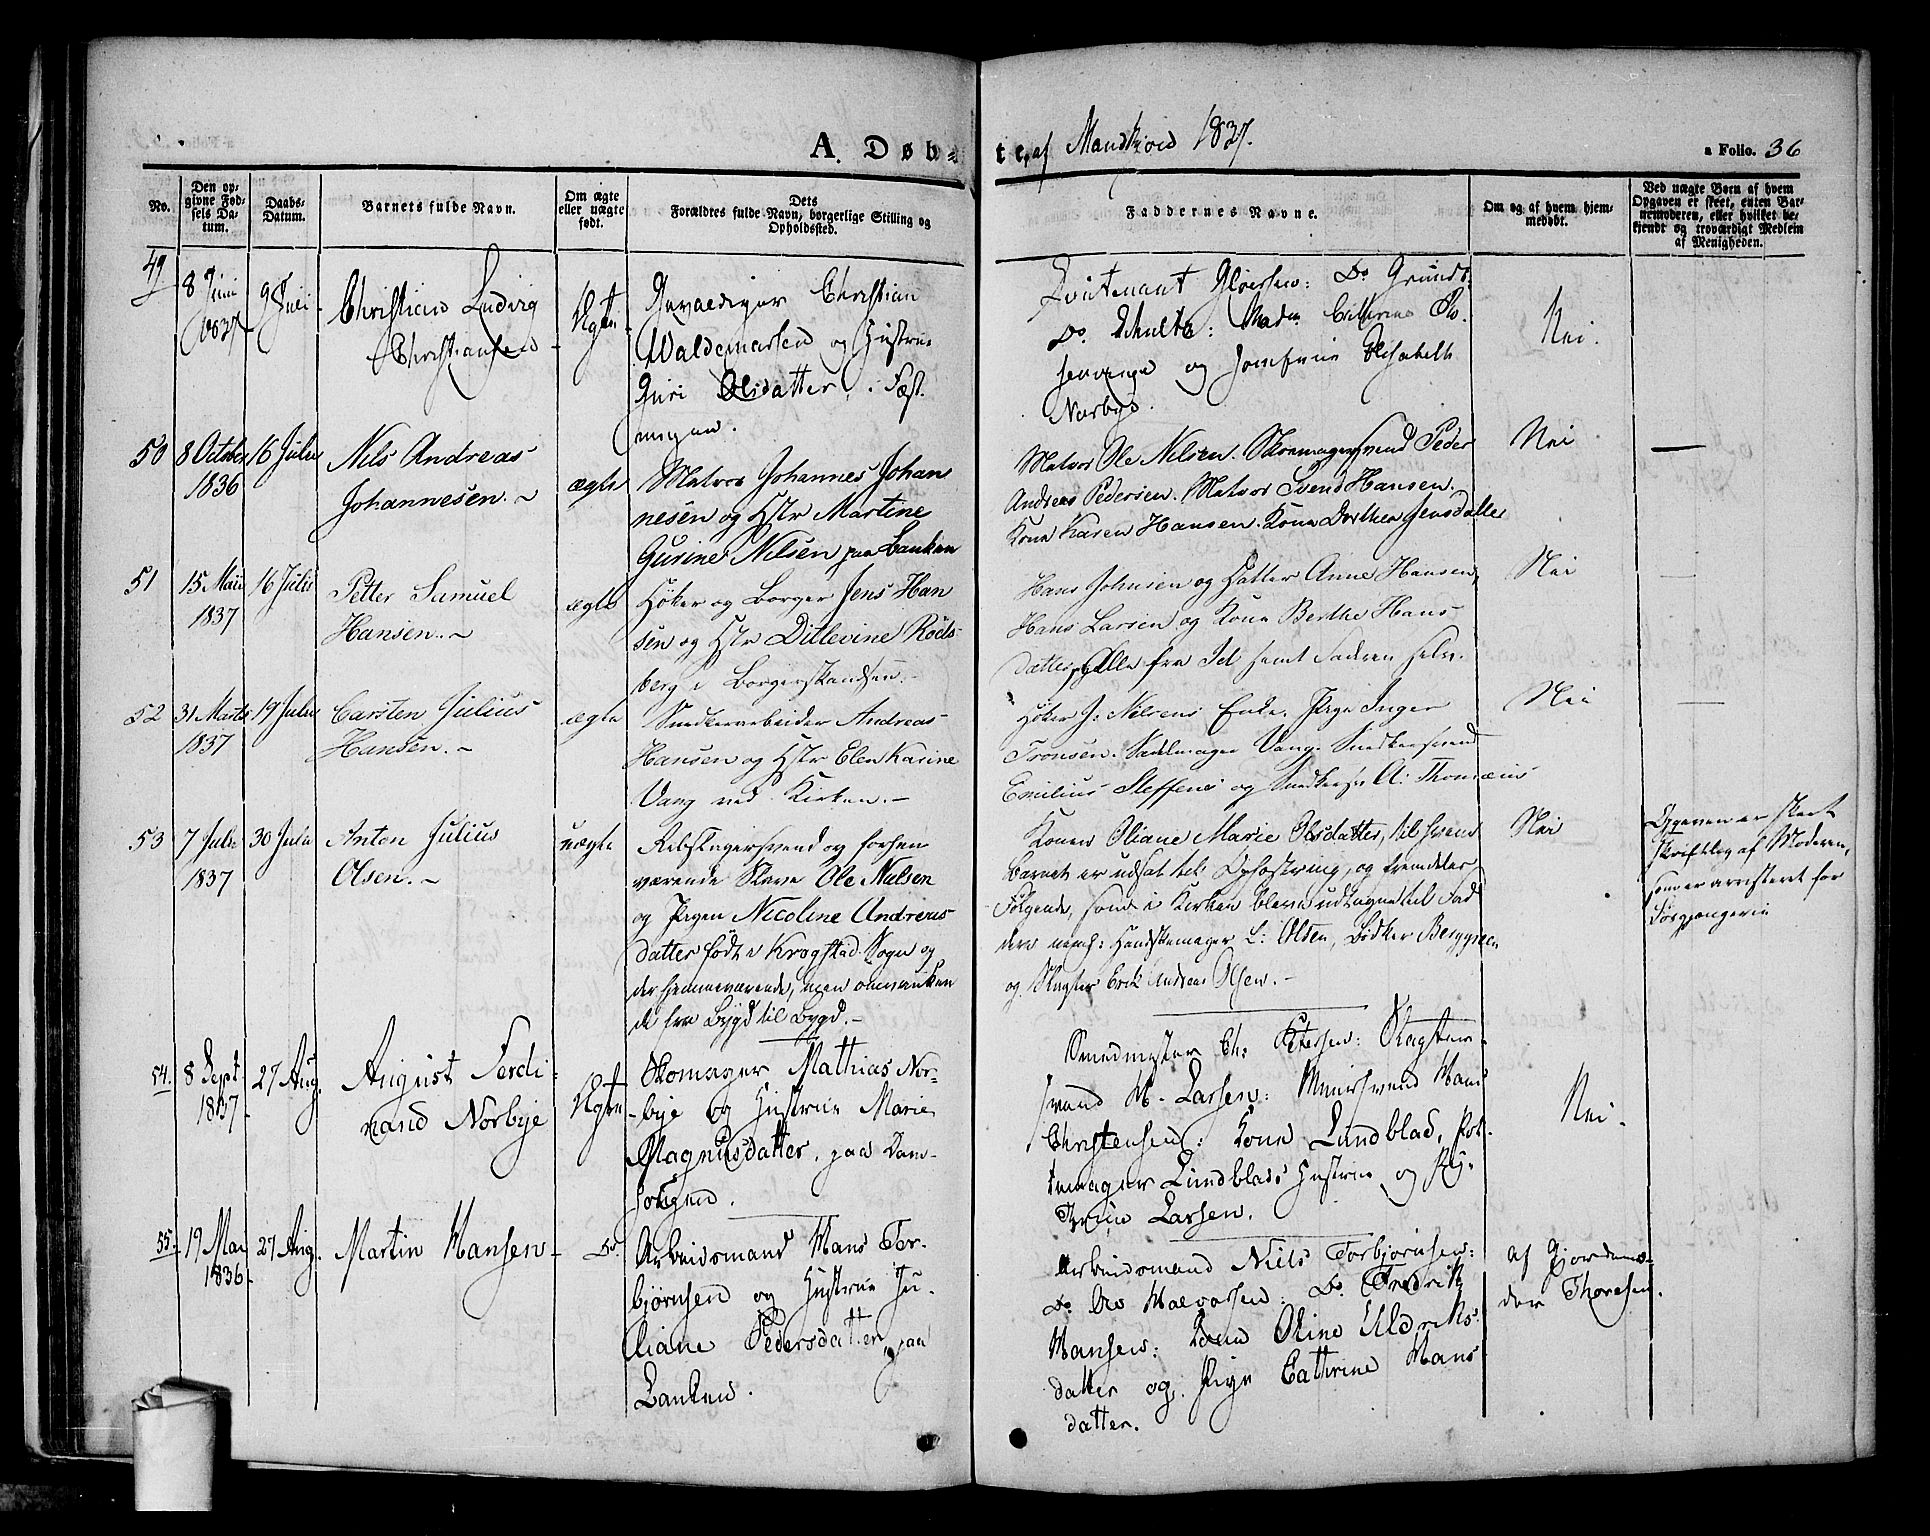 A. Døb-
te, af Mandkiøn 1837.
a Folio. 36
No.
Den op-
givne Fød-
sels Da-
tum.
Daabs-
Datum.
Barnets fulde Navn.
Om ægte
eller uægte
født.
Dets
Forældres fulde Navn, borgerlige Stilling og
Opholdssted.
Faddernes Navne.
Om og af hvem hjem-
medøbt.
Ved uægte Børn af hvem
Opgaven er skeet, enten Bar-
nemoderen, eller hvilket be-
kjendt og troværdigt Medlem
af Menigheden.
49
8 Juni
1837
9 Juli
Christian Ludvig
Christiansen
Ægte
Gevaldiger Christian
Waldemarsen og Hustru
Guri Olsdatter, i Fæst-
ningen.
Lieutenant Gløersen: Do Grundt:
Do Schultz: Madm Cathrine
og Josefine Elisabeth
Norbye.
Nei.
50
8 October
1836
16 Julii
Nils Andreas
Johannesen. ~
ægte
Matros Johannes Johan
nesen og Hstr Martine
Gurine Nilsen paa Banken
Matros Ole Nilsen. Skomagersvend Peder
Andreas Pedersen. Matros Svend Hansen.
Kone Karen Hansen. Kone Dorthea Jensdatter
Nei
—
51
15 Mai
1837
16 Julii
Petter Samuel
Hansen. ~
ægte
Høker og Borger Jens Han
sen og Hstr Ditlevine Røds-
berg i Borgerskandsen. –
Hans Johnsen og Datter Anne Hansen,
Hans Larsen og Kone Berthe Hans
datter, Alle fra Id samt Faderen selv.
Nei
—
52
31 Marts
1837
19 Julii
Carsten Julius
Hansen. ~
ægte
Snedkerarbeider Andreas
Hansen og Hstr Elen Karine
Vang ved Kirken. –
Høker J: Nilsens Enke. Pige Inger
Tronsen. Sadelmager Vang. Snedkersvend
Emilius Steffens og Snedkersv. A: Thomæus
Nei
—
53
7 Julii
1837
30 Julii
Anton Julius
Olsen. ~
uægte
Rebslagersvend og forhen
værende Slave Ole Nielsen
og Pigen Nicoline Andreas
datter født i Krogstad Sogn og
der hjemmeværende, men omvanken
de fra Bygd til Bygd. –
Konen Oliane Marie Olsdatter, til hvem
Barnet er udsat til Opfostring, og fremdeles
Følgende, som i Kirken bleve udtagne til Fad
dere nemf: Handskemager L: Olsen, Bødker Berggreen
og Slagter Erik Andreas Olsen. –
Nei
Opgaven er skeet
skriftlig af Moderen,
som er arresteret for
54.
8 Sept
1837
27 Aug.
August Ferdi-
nand Norbye
Ægte
Skomager Mathias Nor-
bye og Hustrue Marie
Magnusdatter, paa Dam-
Smedmester Ch: Petersen: Slagter-
svend M. Larsen: Muursvend Hans
Christensen: Kone Lundblad, Pot-
temager Lundblads Hustrue, og Pi-
Larsen.
Nei.
55.
19 Mai
1836
27 Aug.
Martin Hansen
Do.
Arbeidsmand Hans Tor-
bjørnsen og Hustrue Ju-
liane Pedersdatter, paa
Banken.
Arbeidsmand Niels Torbjørnsen:
Do Ole Halvorsen: Do Fredrik
Hansen: Kone Oline Uldriks-
datter og Pige Cathrine Hans
datter.
af Gjordemo-
der Thoresen.